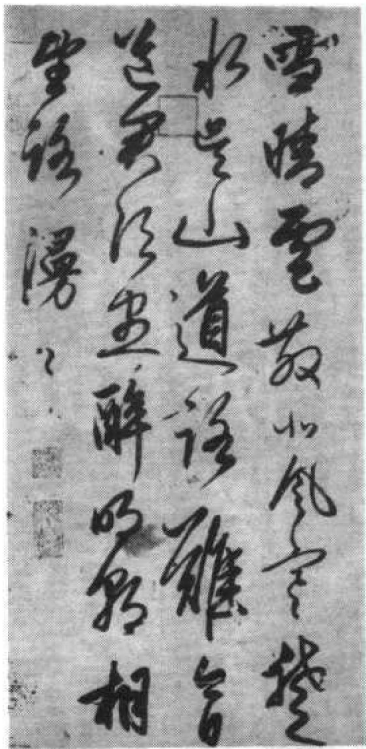 雪晴雲散北風寒楚
水吳山道路難今日
送君須盡醉明朝相
望路漫々